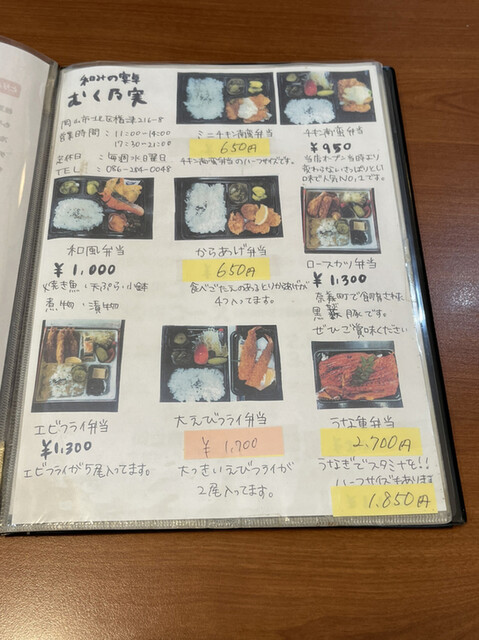 和みの実卓
むく乃実
岡山市北区楢津216-8
営業時間：11:00-14:00
17:30-21:00
定休日：毎週水曜日
TEL：086-284-0048
ミニチキン南蛮弁当
650円
チキン南蛮弁当のハーフサイズです。
チキン南蛮弁当
¥950
当店オープン当時より
変わらないさっぱりとした
味で人気NO,1です。
和風弁当
¥1,000
焼き魚・天ぷら・小鉢
煮物・漬物
からあげ弁当
650円
食べごたえのあるとり唐揚げが
4つ入ってます。
ロースカツ弁当
¥1,300
奈義町で飼育された
黒豚です。
ぜひご賞味ください
エビフライ弁当
¥1,300
エビフライが5尾入ってます。
大えびフライ弁当
¥1,700
大っきいえびフライが
2尾入ってます。
うな重弁当
2,700円
うなぎでスタミナを!!
ハーフサイズもあります
1,850円